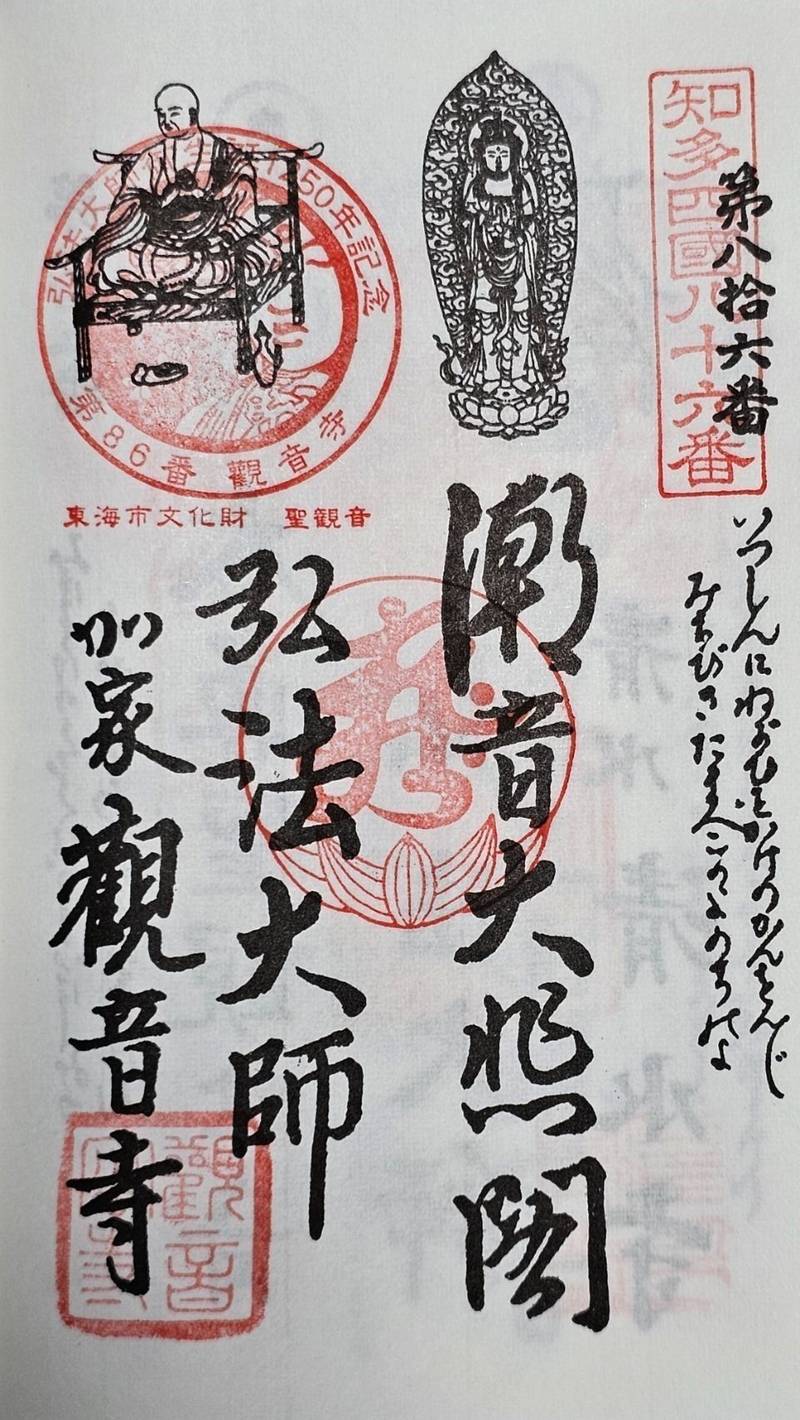 知多四國八十六番
第八拾六番
いつしんにねがひをかけのかんをんじ
みちびきたまへこのよのちのよ
潮音大悲閣
弘法大師
加家觀音寺
弘法大師 50年記念
第86番 觀音寺
東海市文化財 聖観音
觀音